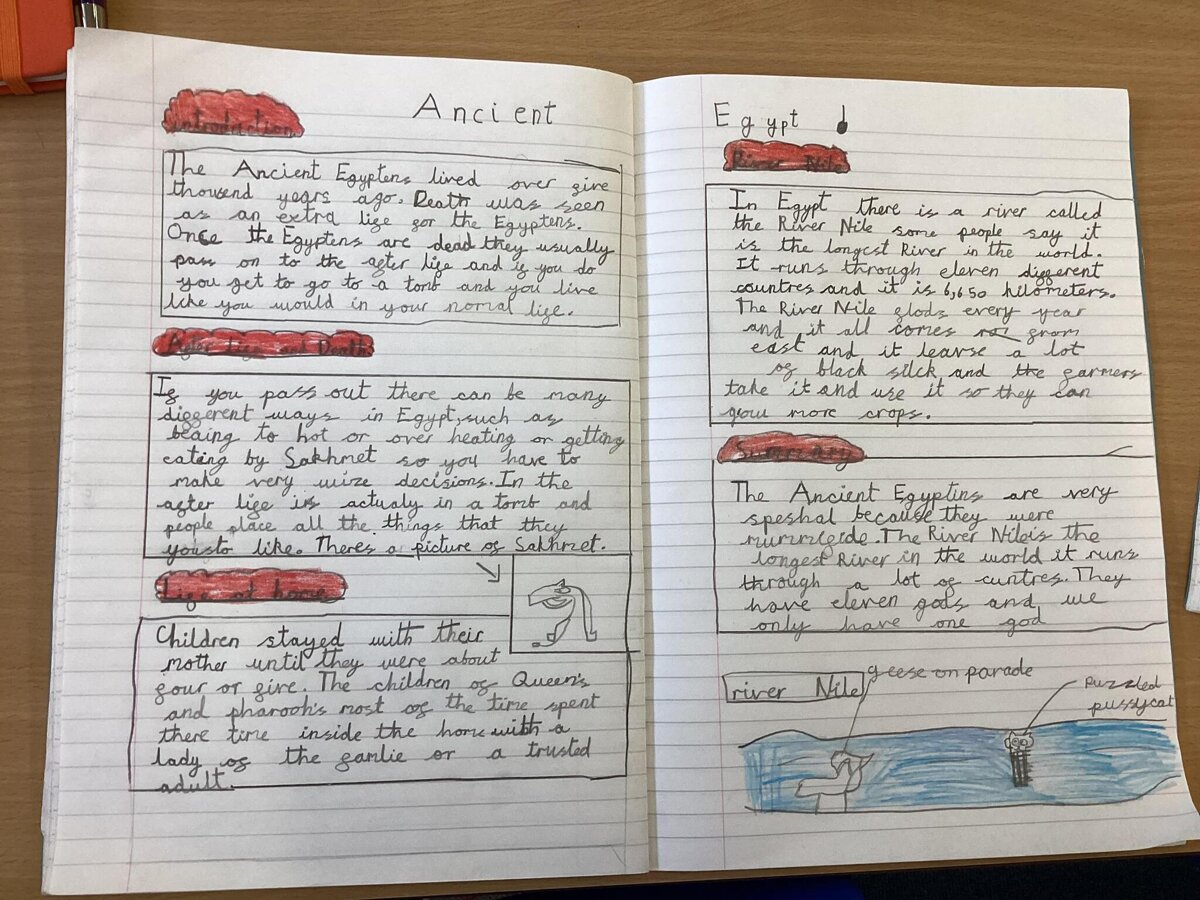 Ancient
introduction
The Ancient Egyptens lived over five
thousend years ago. Death was seen
as an extra life for the Egyptens.
Once the Egyptens are dead they usually
pass on to the after life and if you do
you get to go to a tomb and you live
like you would in your nomal life.
After Life and Death
If you pass out there can be many
different ways in Egypt, such as
beaing to hot or over heating or getting
eating by Sakhmet so you have to
make very wize decisions. In the
after life is actualy in a tomb and
people place all the things that they
yousto like. There's a picture of Sakhmet.
Life at home
Children stayed with their
mother until they were about
four or five. The children of Queen's
and pharooh's most of the time spent
there time inside the home with a
lady of the famlie or a trusted
adult.
Egypt
River Nile
In Egypt there is a river called
the River Nile some people say it
is the longest River in the world.
It runs through eleven different
countres and it is 6,650 kilometers.
The River Nile flods every year
and it all comes from
east and it leavse a lot
of black silck and the farmers
take it and use it so they can
grow more crops.
Summary
The Ancient Egyptins are very
speshal because they were
mummifide. The River Nile is the
longest River in the world it runs
through a lot of cuntres. They
have eleven gods and we
only have one god
river Nile
geese on parade
puzzled
pussycat